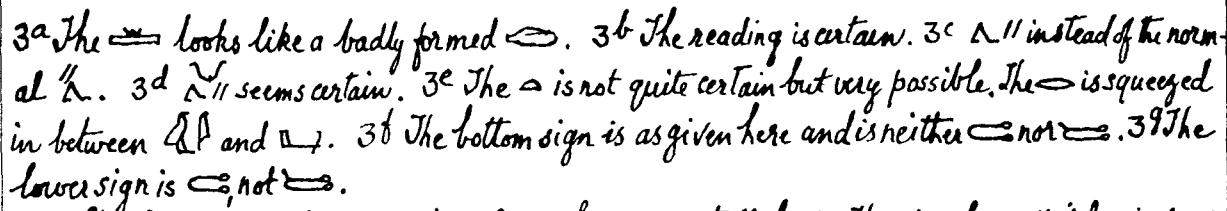 3a The looks like a badly formed . 3b The reading is certain. 3c instead of the norm-
al . 3d seems certain. 3e The is not quite certain but very possible. The is squeezed
in between and . 3f The bottom sign is as given here and is neither nor . 3g The
lower sign is , not .